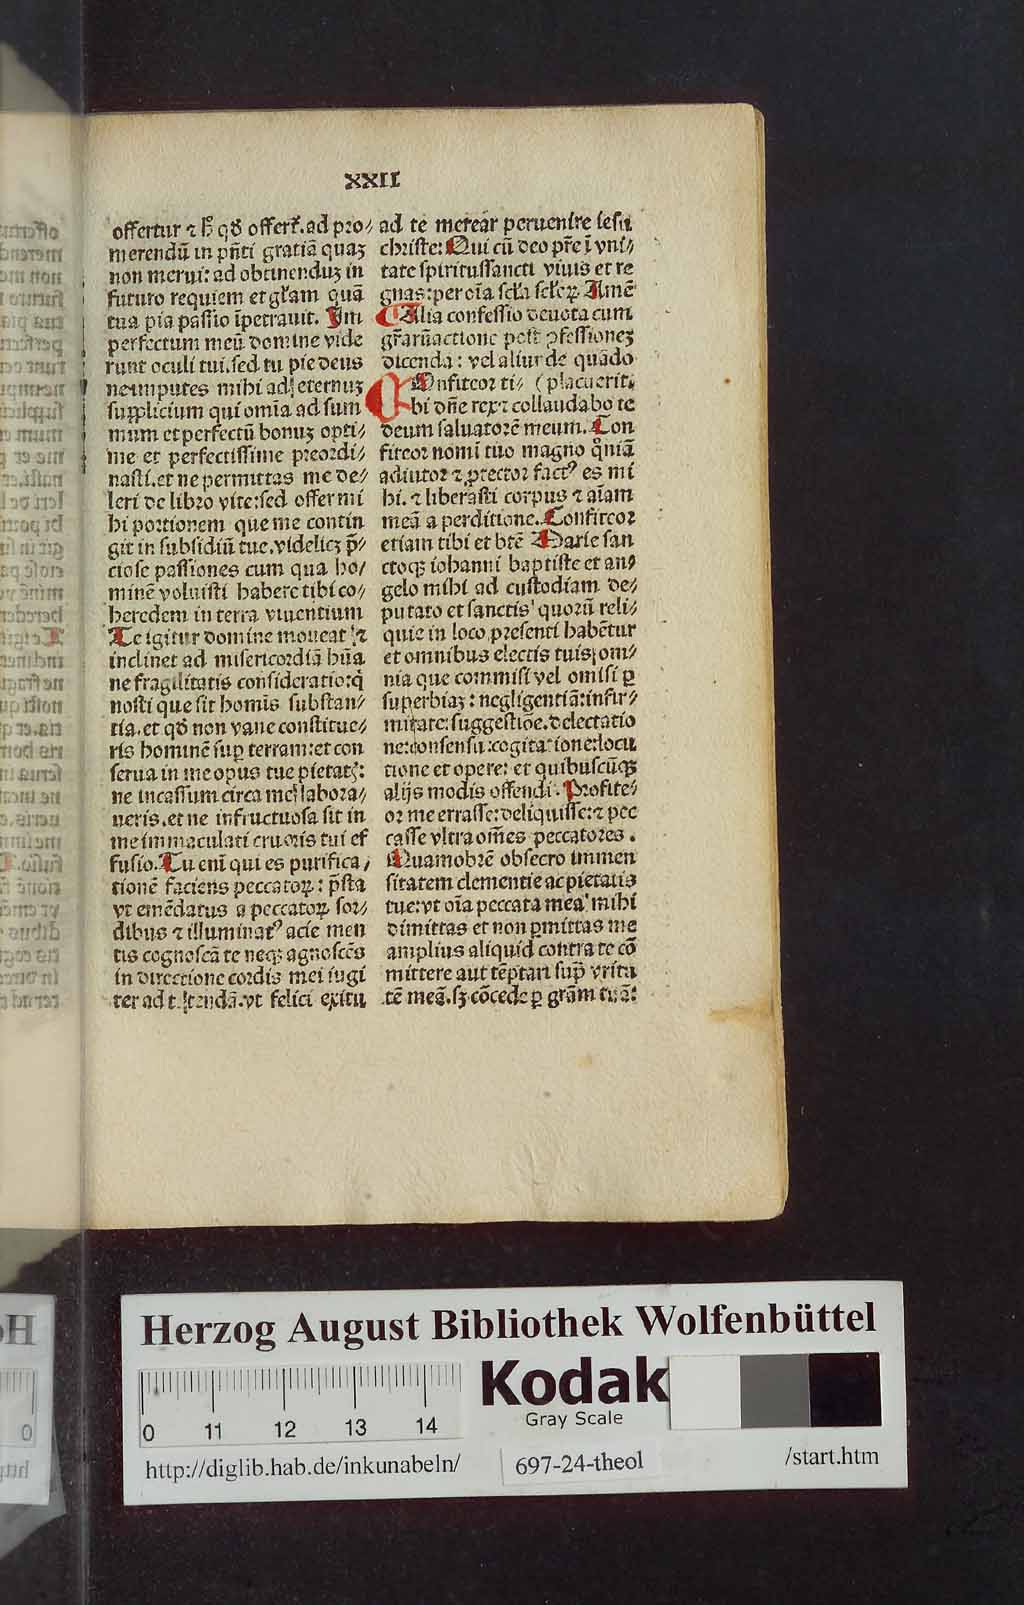 XXII
offertur ⁊ hͦ qđ offert̃. ad pro⸗
merendũ in pñti gratiã quaʒ
non merui: ad obtinenduʒ in
futuro requiem et gl̃am quã
tua pia passio ĩpetrauit. Im
perfectum meũ domine vide
runt oculi tui. sed tu pie deus
ne imputes mihi ad eternuʒ
supplicium qui om̃ia ad sum
mum et perfectũ bonuʒ opti⸗
me et perfectissime preordi⸗
nasti. et ne permittas me de⸗
leri de libro vite: sed offer mi
hi portionem que me contin
git in subsidiũ tue. videlicʒ p̃⸗
ciose passiones cum qua ho⸗
minẽ voluisti habere tibi co⸗
heredem in terra viuentium
Te igitur domine moueat ⁊
inclinet ad misericordiã hũa
ne fragilitatis consideratio: q̃
nosti que sit homis̃ substan⸗
tia. et qđ non vane constitue⸗
ris hominẽ suꝑ terram: et con
serua in me opus tue pietatꝭ:
ne incassum circa me labora⸗
ueris. et ne infructuosa sit in
me immaculati cruoris tui ef
fusio. Tu enĩ qui es purifica⸗
tionẽ faciens peccatoꝝ: p̃sta
vt emẽdatus a peccatoꝝ sor⸗
dibus ⁊ illuminatꝰ acie men
tis cognoscã te neqꝫ agnoscẽs
in directione cordis mei iugi
ter ad te tendã. vt felici exitu
ad te merear peruenire iesu
christe: Qui cũ deo pr̃e ĩ vni⸗
tate spiritussancti viuis et re
gnas: per oĩa scl̃a scl̃oꝝ. Amẽ
Alia confessio deuota cum
gr̃aruactione post ꝓfessioneʒ
dicenda: vel aliunde quãdo
Onfiteor ti⸗ (placuerit.
C bi dñe rex ⁊ collaudabo te
deum saluatorẽ meum. Con
fiteor nomĩ tuo magno qm̃iã
adiutor ⁊ ꝓtector factꝰ es mi
hi. ⁊ liberasti corpus ⁊ aĩam
meã a perditione. Confiteor
etiam tibi et btẽ Marie san
ctoqꝫ iohanni baptiste et an⸗
gelo mihi ad custodiam de⸗
putato et sanctis quorũ reli⸗
quie in loco presenti habẽtur
et omnibus electis tuis om⸗
nia que commisi vel omisi ꝑ
superbiaʒ: negligentiã: infir⸗
mitate: suggestiõe. delectatio
ne: consensu: cogitatione: locu
tione et opere: et quibuscũqꝫ
alijs modis offendi. Profite⸗
or me errasse: deliquisse: ⁊ pec
casse vltra om̃es peccatores.
Quamobrẽ obsecro immen
sitatem clementie ac pietatis
tue: vt oĩa peccata mea mihi
dimittas et non ꝑmittas me
amplius aliquid contra te cõ
mittere aut tẽptari suꝑ virtu
tẽ meã. sʒ cõcede ꝑ grãm tuã:
Herzog August Bibliothek Wolfenbüttel
Kodak
Gray Scale
0 11 12 13 14
http://diglib.hab.de/inkunabeln/
697-24-theol
/start.htm